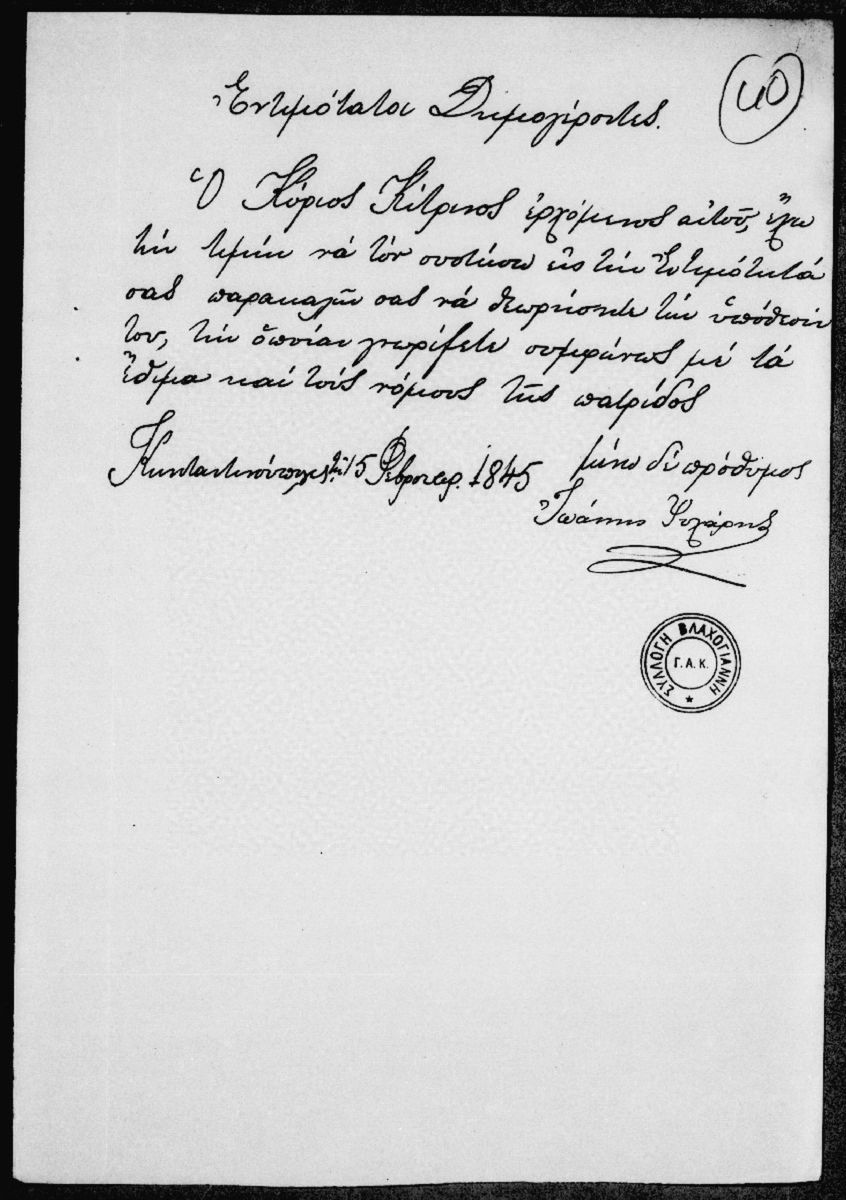 40
Ἐντιμότατοι Δημογέροντες.
Ὁ Κύριος Κίτρινος ἐρχόμενος αὐτοῦ, ἔχω
τὴν τιμὴν νά τόν συστήσω εἰς τὴν Ἐντιμότητά
σας παρακαλῶν σας νά θεωρήσητε τὴν ὑπόθεσίν
του, τὴν ὁποίαν γνωρίζετε συμφώνως μέ τά
ἔθιμα καί τούς νόμους τῆς πατρίδος
Κωνσταντινούπολις τῇ 15 Φεβρουαρ. 1845
μένω δέ πρόθυμος
Ἰωάννης
ΣΥΛΛΟΓΗ ΒΛΑΧΟΓΙΑΝΝΗ
Γ.Α.Κ.